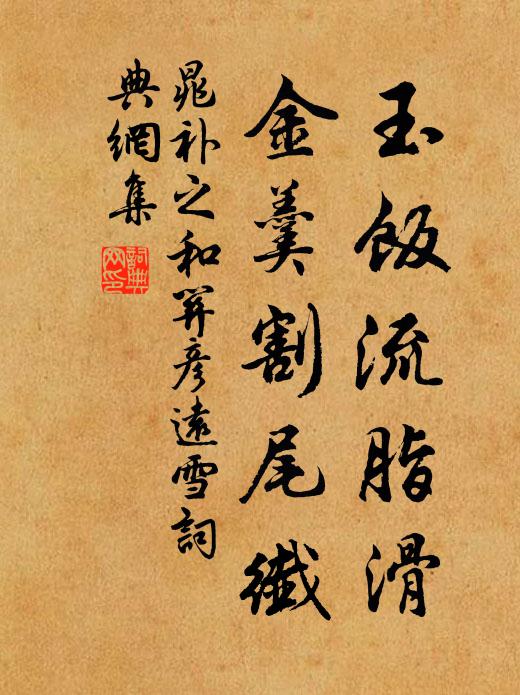 玉飯流脂滑
金羹割尾纖
晁补之和羿彥遠雪詞
典網集
詞典
网印